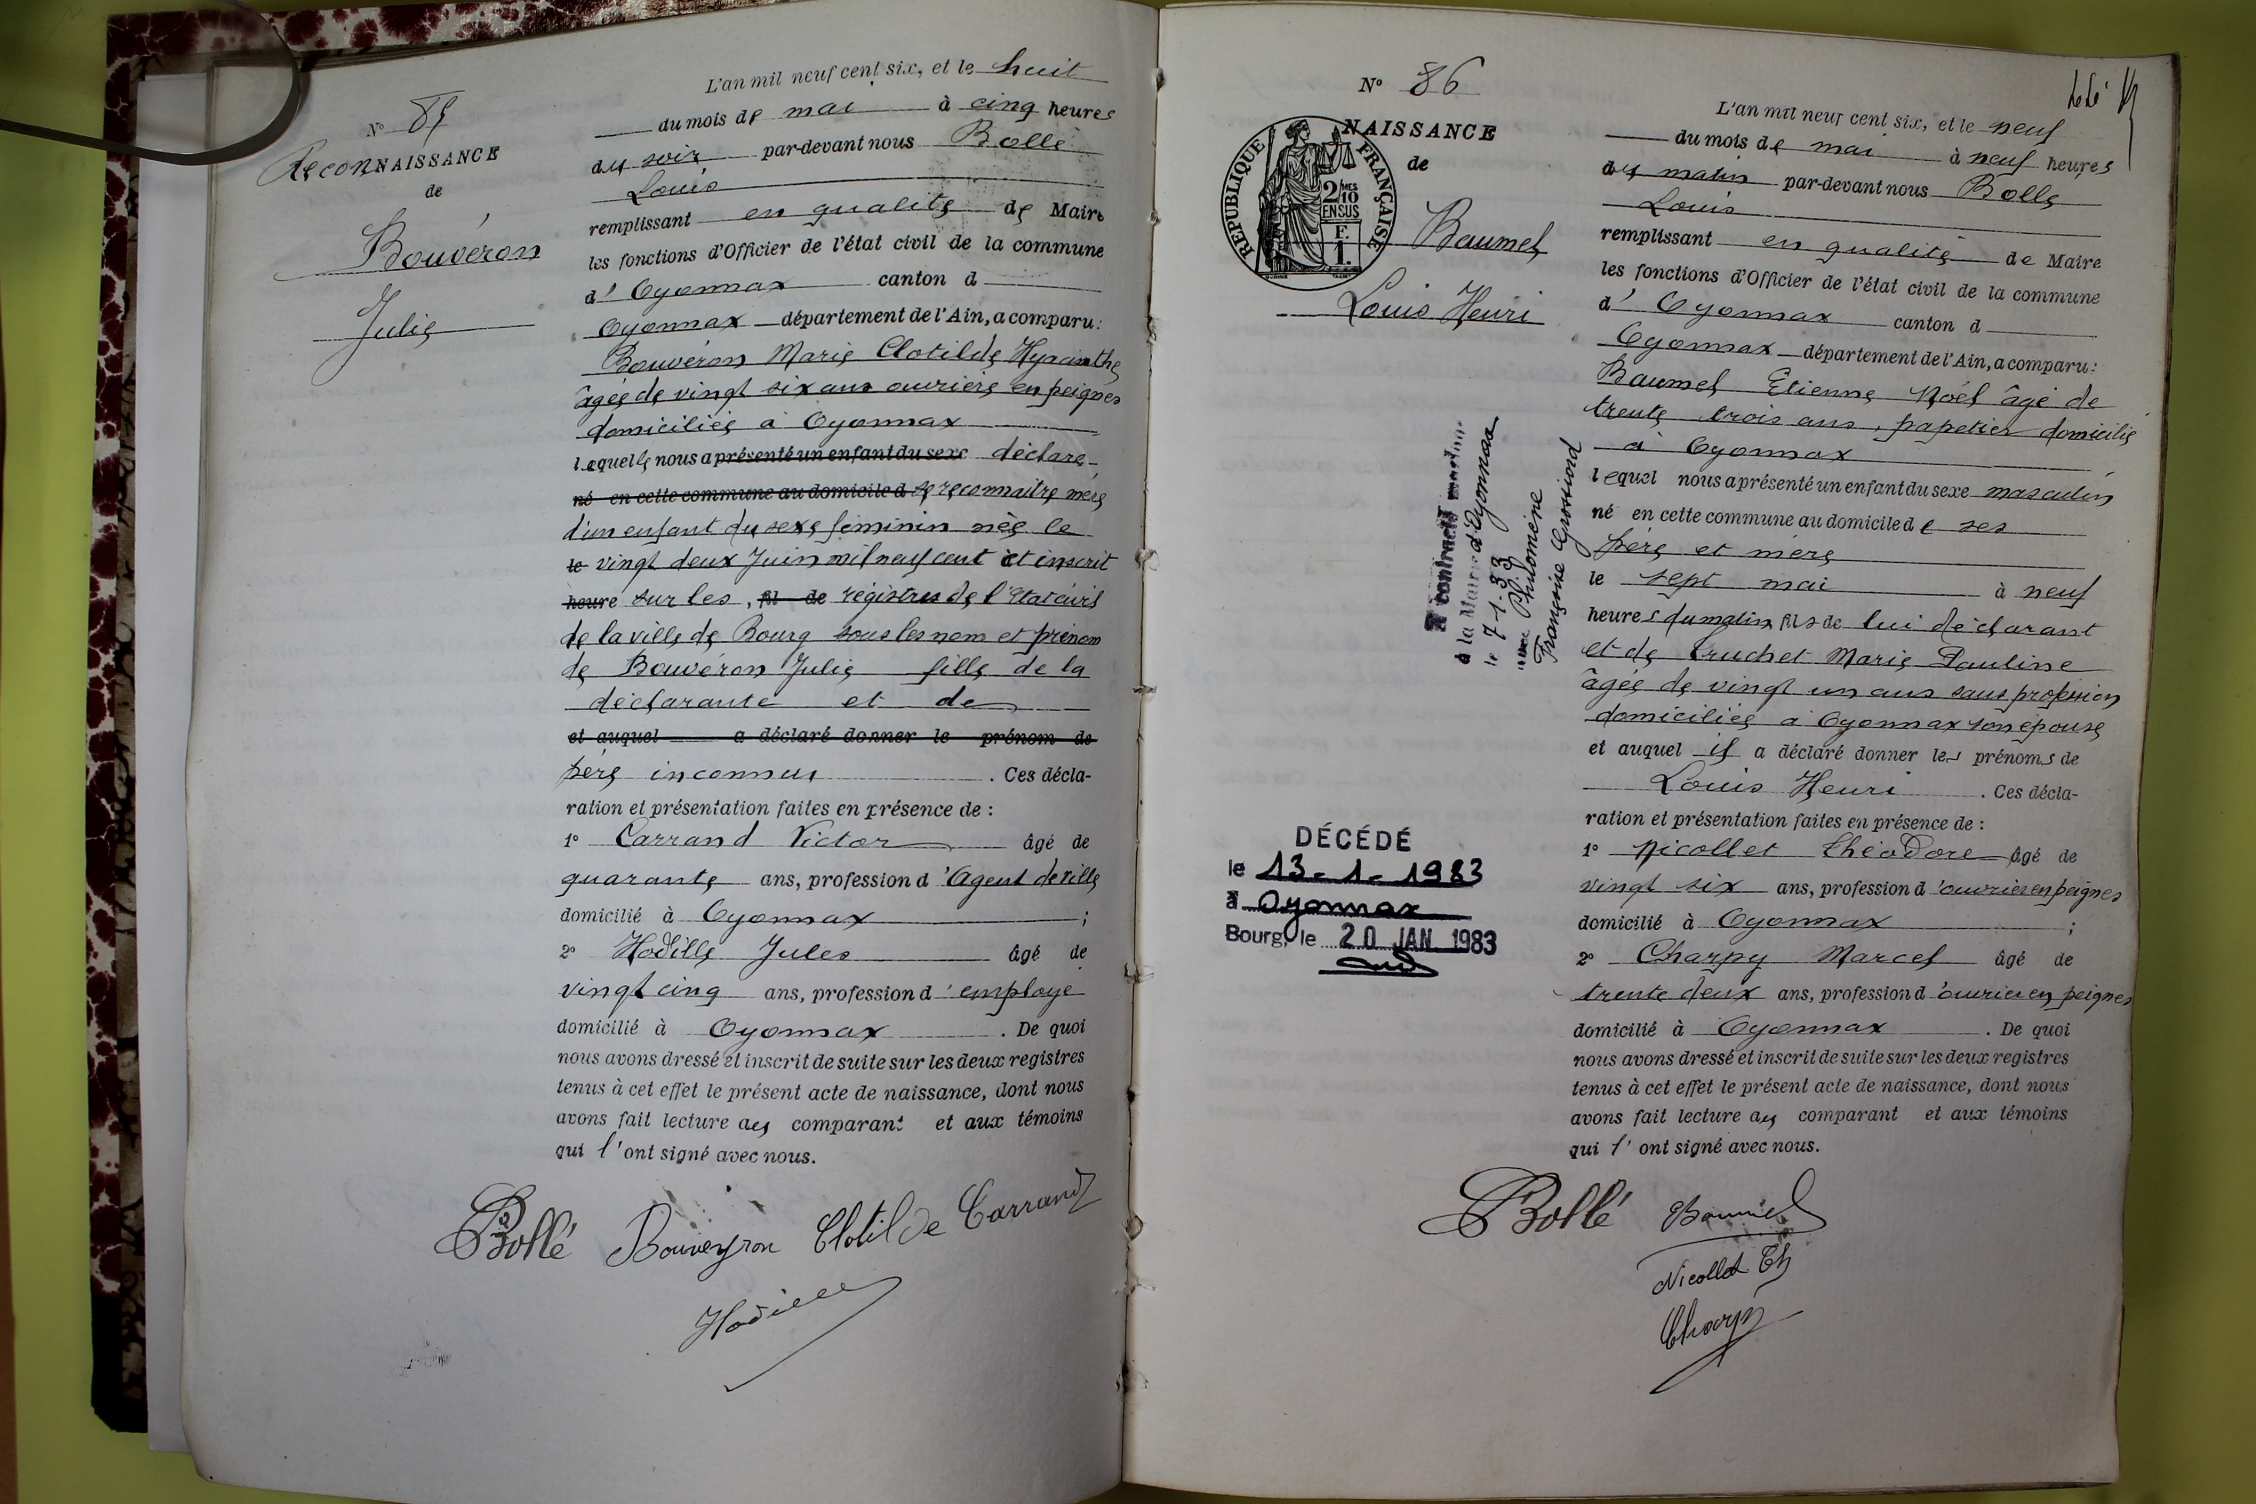 N° 85
RECONNAISSANCE
de
Bouvéron
Julie
L'an mil neuf cent six, et le huit
du mois de mai à cinq heures
du soir par-devant nous Bollé
Louis
remplissant en qualité de Maire
les fonctions d'Officier de l'état civil de la commune
d' Oyonnax canton d
Oyonnax département de l'Ain, a comparu:
Bouvéron Marie Clotilde Hyacinthe
âgée de vingt six ans ouvrière en peignes
domiciliée à Oyonnax
laquelle nous a présenté un enfant du sexe déclaré
né en cette commune au domicile d se reconnaitre mère
d'un enfant du sexe féminin née le
le vingt deux Juin mil neuf cent et inscrit
heure sur les, fil de registres de l'Etat civil
de la ville de Bourg sous les nom et prénom
de Bouvéron Julie fille de la
déclarante et de
et auquel a déclaré donner le prénom de
père inconnu . Ces décla-
ration et présentation faites en présence de :
1° Carrand Victor âgé de
quarante ans, profession d'Agent de ville
domicilié à Oyonnax ;
2° Hodille Jules âgé de
vingt cinq ans, profession d'employé
domicilié à Oyonnax . De quoi
nous avons dressé et inscrit de suite sur les deux registres
tenus à cet effet le présent acte de naissance, dont nous
avons fait lecture aux comparant et aux témoins
qui l'ont signé avec nous.
Bollé Bouveyron Clotilde Carrand
Hodille
N° 86
NAISSANCE
de
RÉPUBLIQUE FRANÇAISE
2/10
MES
EN SUS
F.
1.
Baumel
Louis Henri
A contracté mariage
à la Mairie d'Oyonnax
le 7-1-33
avec Philomène
Françoise Grossiord
DÉCÉDÉ
le 13-1-1983
à Oyonnax
Bourg, le 20 JAN 1983
L'an mil neuf cent six, et le neuf
du mois de mai à neuf heures
du matin par-devant nous Bollé
Louis
remplissant en qualité de Maire
les fonctions d'Officier de l'état civil de la commune
d' Oyonnax canton d
Oyonnax département de l'Ain, a comparu:
Baumel Etienne Noël âgé de
trente trois ans, papetier domicilié
à Oyonnax
lequel nous a présenté un enfant du sexe masculin
né en cette commune au domicile de ses
père et mère
le sept mai à neuf
heures du matin fils de lui déclarant
et de Truchet Marie Pauline
âgée de vingt un ans sans profession
domiciliée à Oyonnax son épouse
et auquel il a déclaré donner les prénoms de
Louis Henri . Ces décla-
ration et présentation faites en présence de :
1° Nicollet Théodore âgé de
vingt six ans, profession d'ouvrier en peignes
domicilié à Oyonnax ;
2° Charpy Marcel âgé de
trente deux ans, profession d'ouvrier en peignes
domicilié à Oyonnax . De quoi
nous avons dressé et inscrit de suite sur les deux registres
tenus à cet effet le présent acte de naissance, dont nous
avons fait lecture aux comparant et aux témoins
qui l'ont signé avec nous.
Bollé Baumel
Nicollet Th
Charpy